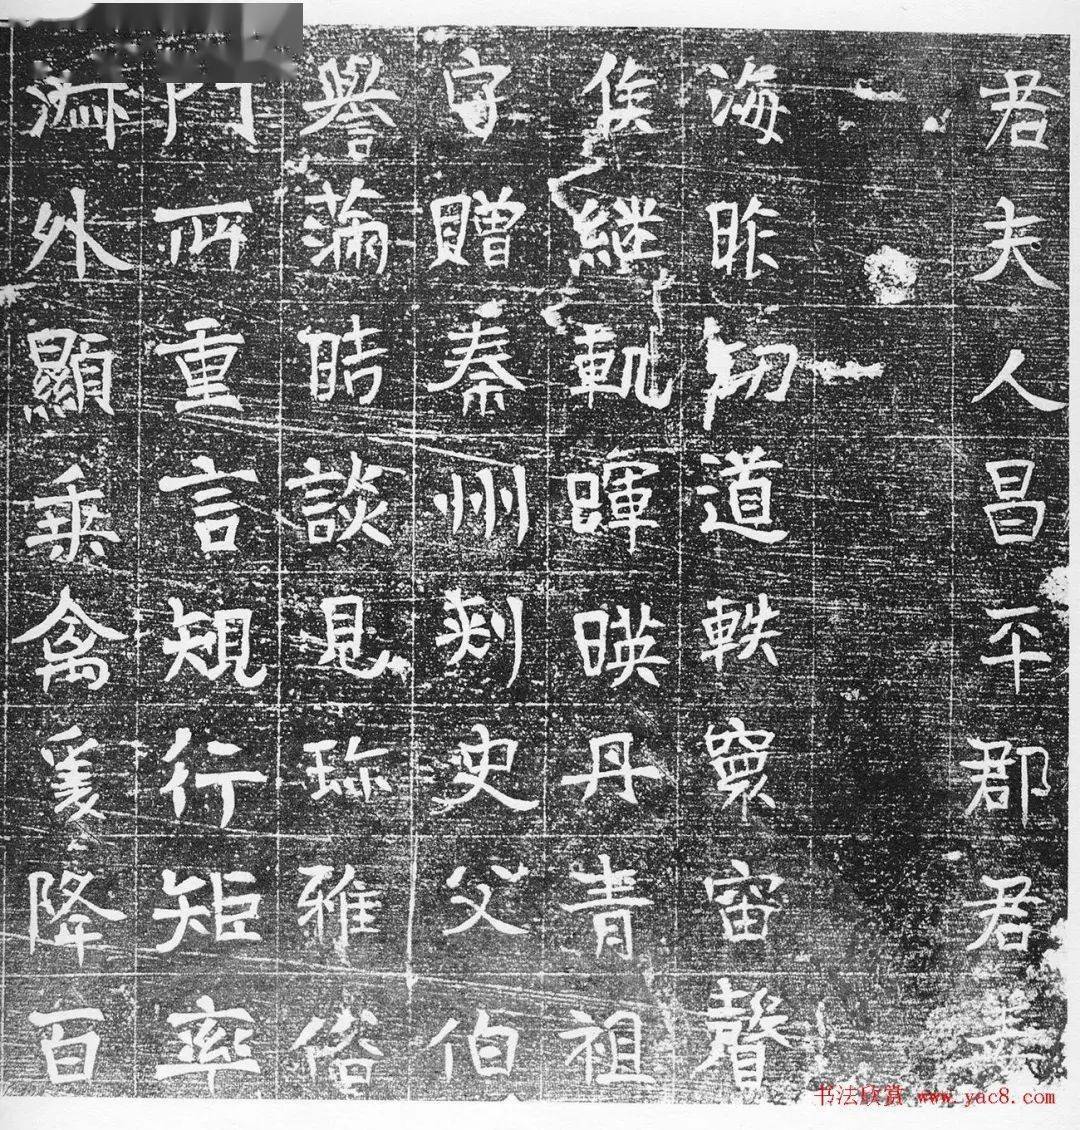 君夫人昌平郡君李
海昨切道軼寰宙聲
侯繼軌暉暎丹青祖
字贈秦州刾史父伯
譽蒲眰談見珎雅俗
門所重言規行矩率
外顯乗禽爰降百
书法欣赏 www.yac8.com